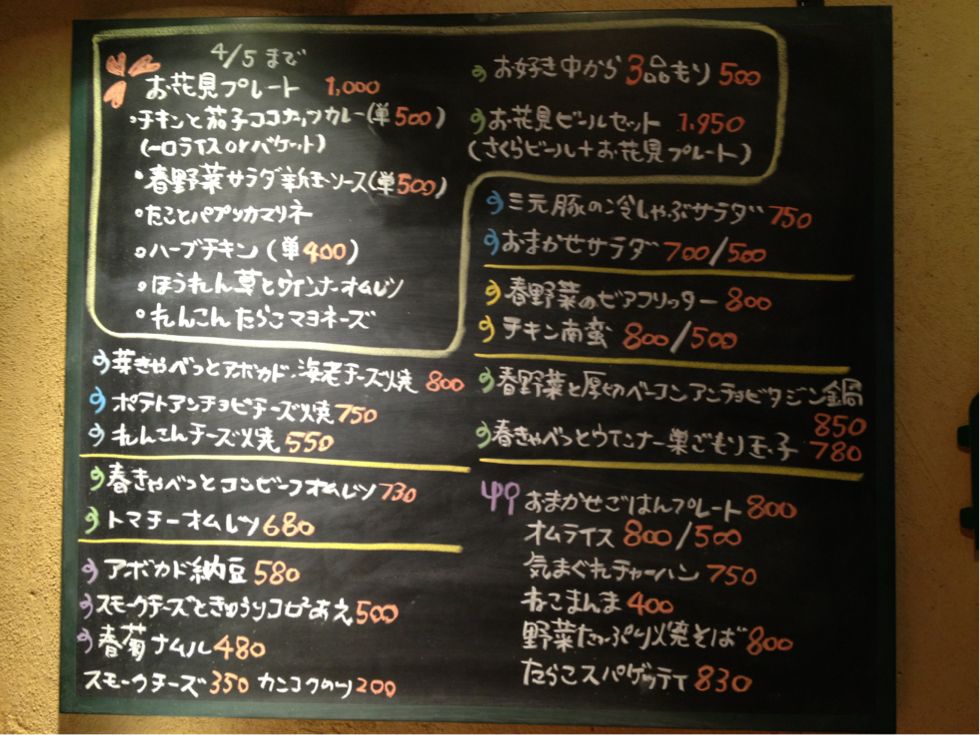 4/5まで
お花見プレート 1,000
・チキンと茄子ココナッツカレー(単500)
(一口ライスorバゲット)
・春野菜サラダ新玉ソース(単500)
・たことパプリカマリネ
・ハーブチキン(単400)
・ほうれん草とウインナーオムレツ
・れんこんたらこマヨネーズ
芽きゃべっとアボカド、海老チーズ焼 800
ポテトアンチョビチーズ焼 750
れんこんチーズ焼 550
春きゃべっとコンビーフオムレツ 730
トマチーオムレツ 680
アボカド納豆 580
スモークチーズときゅうりコロコロあえ 500
春菊ナムル 480
スモークチーズ 350 カンコクのり 200
お好き中から3品もり 500
お花見ビールセット 1,950
(さくらビール+お花見プレート)
三元豚の冷しゃぶサラダ 750
おまかせサラダ 700/500
春野菜のビアフリッター 800
チキン南蛮 800/500
春野菜と厚切ベーコンアンチョビタジン鍋
850
春きゃべっとウインナー巣ごもり玉子 780
おまかせごはんプレート 800
オムライス 800/500
気まぐれチャーハン 750
ねこまんま 400
野菜たっぷり焼そば 800
たらこスパゲッティ 830